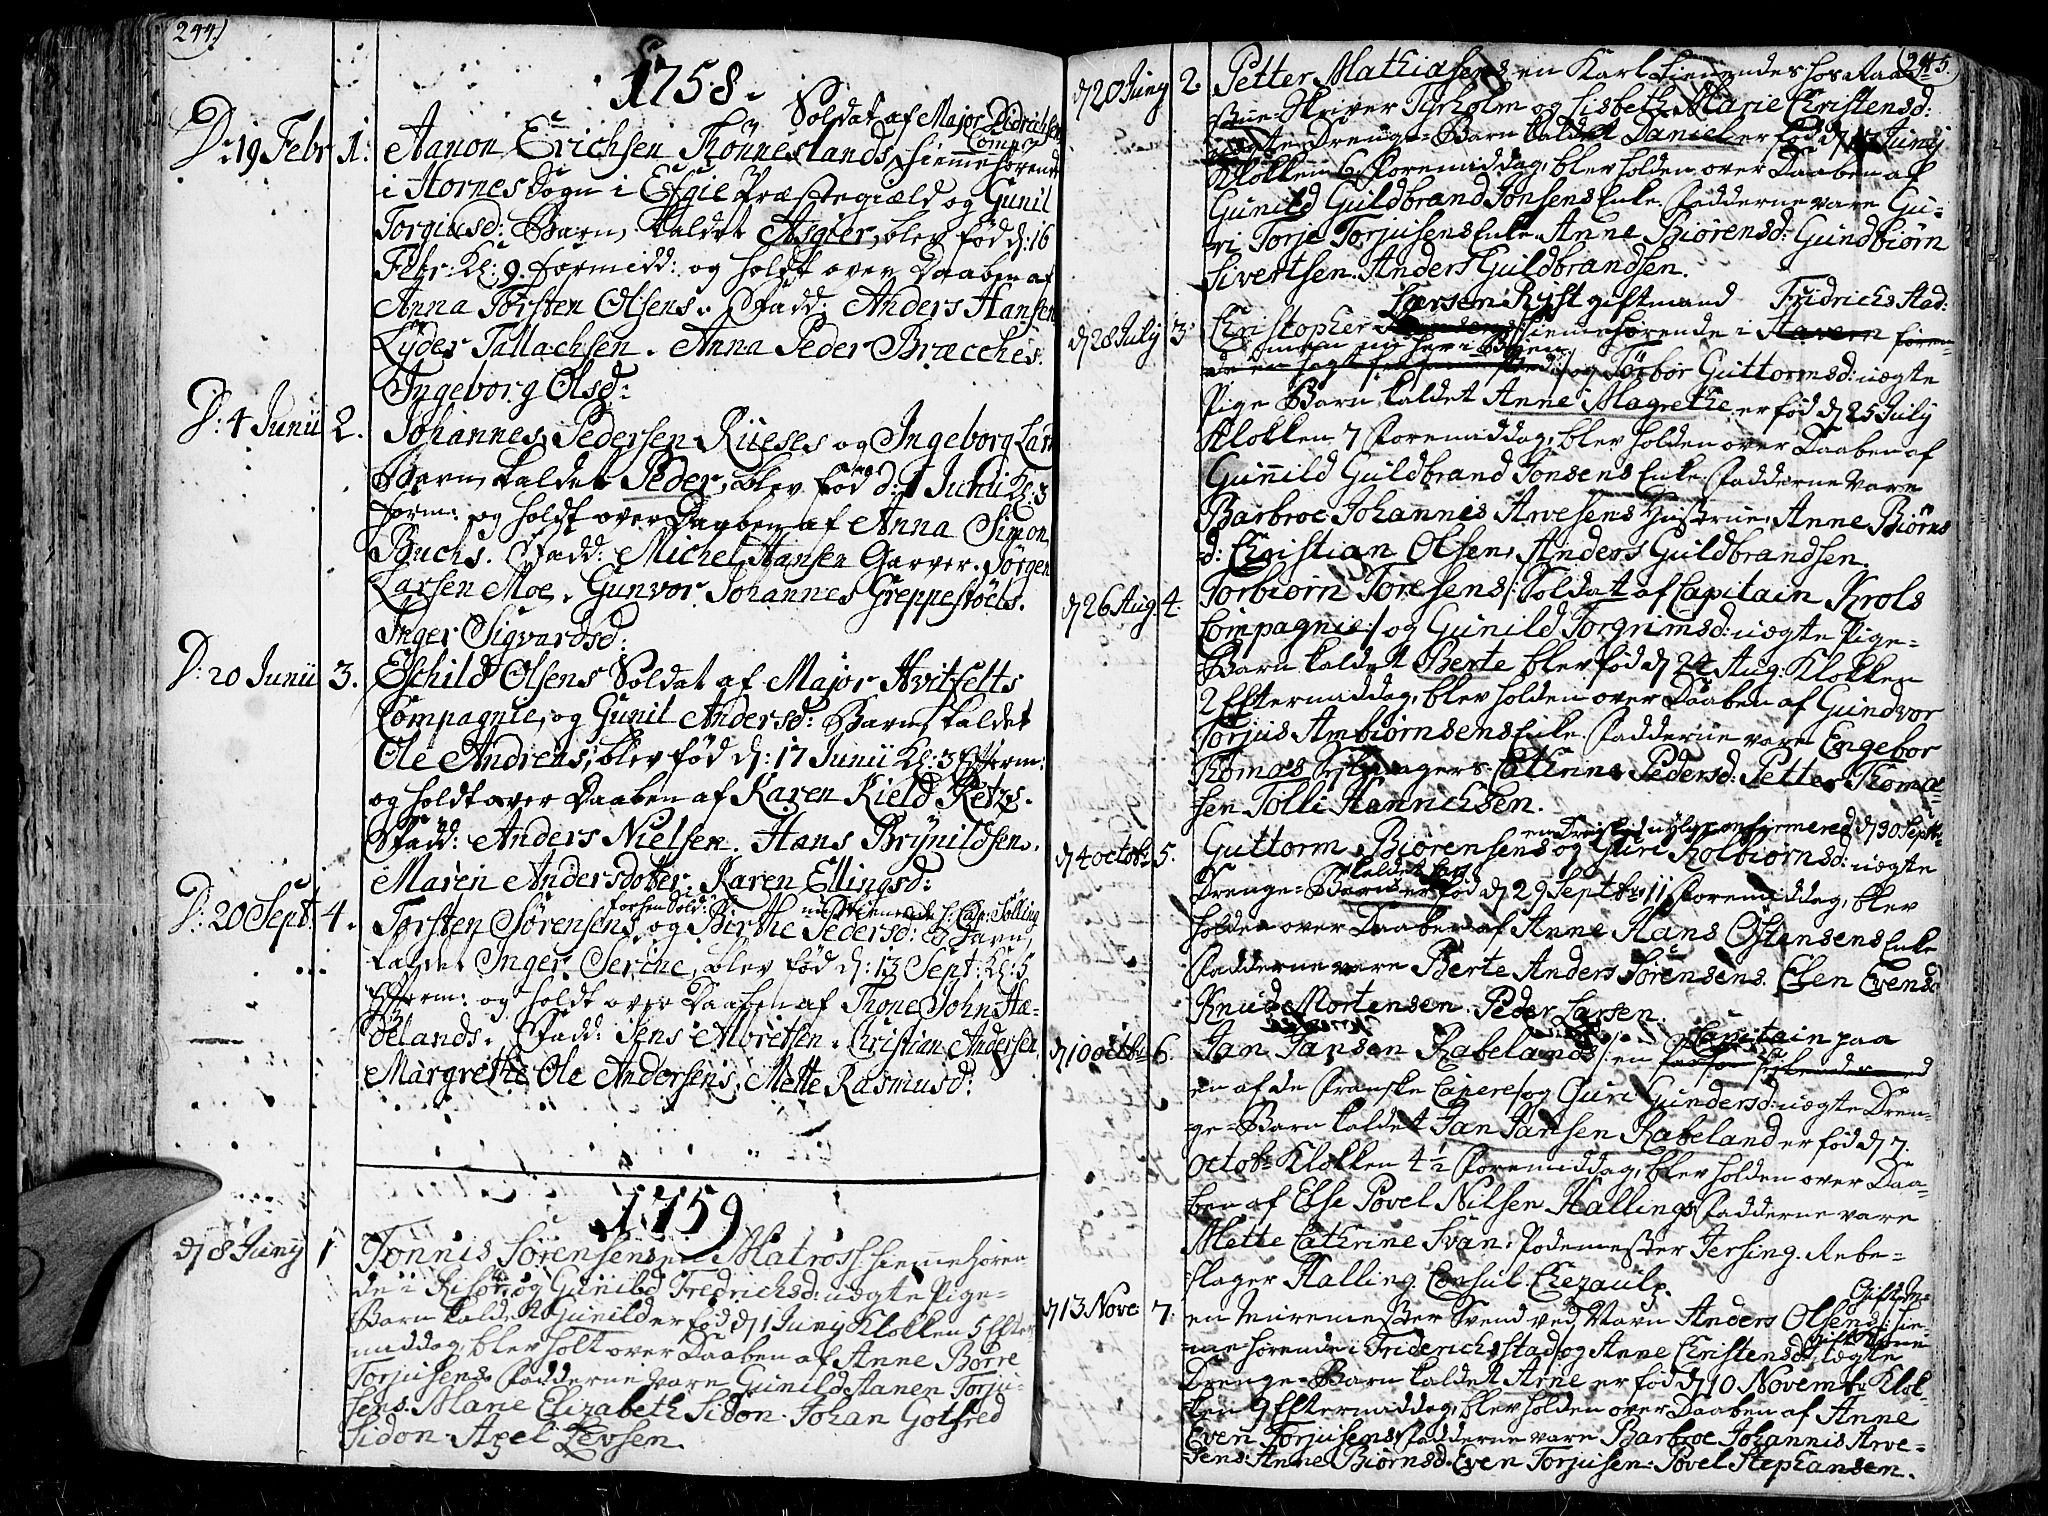 244.
1758.
D: 19 Febr 1. Soldat af Major Didrichsens Comp:
Aanon Erichsen Thonneslands, hiemmehørende
i Hornes Sogn i Efgie Præstegiæld og Gunil
Torgiusd: Barn, kaldet Asgier, blev fød d: 16
Febr: Kl: 9. formidd: og holdt over Daaben af
Anna Torsten Olsens. Fadd: Anders Hansen
Lyder Tallachsen. Anna Peder Bracches.
Ingeborg Olsd:
D: 4 Junii 2. Johannes Pedersen Riieses og Ingeborg Lars
Barn, kaldet Peder, blev fød d: 1 Junii Kl: 3
form: og holdt over Daaben af Anna Simon
Buchs. Fadd: Michel Hansen Garver. Jørgen
Larsen Moe. Gunvor Johannes Greppestøels.
Inger Sigvardsd:
D: 20 Junii 3. Eschild Olsens Soldat af Major Hvitfelts
Compagnie, og Gunil Andersd: Barn, kaldet
Ole Andreas, blev fød d: 17 Junii Kl: 3 Efterm:
og holdt over Daaben af Karen Kield Retzs.
Fadd: Anders Nielsen. Hans Brynildsen.
Maren Andersdotter. Karen Ellingsd:
D: 20 Sept. 4. Torsten Sørensens og Birthe Pedersd: Barn,
kaldet Inger Serine, blev fød d: 13 Sept: Kl: 5
Efterm: og holdt over Daaben af Thone John Hæ-
velands. Fadd: Jens Albretsen. Christian Andersen
Margrethe Ole Andersens. Mette Rasmusd:
1759
d 8 Junij 1 Tonnis Sørensens en Matros hiemmehøren
de i Risør, og Gunild Fredrichsd: uægte Pige-
Barn kaldet Gunild er fød d 1 Junij Klokken 5 Efter
middag, blev holt over Daaben af Anne Børre
Torjusens. Fadderne vare Gunild Hanen Torju-
sens. Marie Elizabeth Sidon. Johan Gotfred
Sidon. Axel Levsen.
245.
d 20 Junij 2. Petter Mathiasens en Karl tienendes hos Raad-
stue-Skriver Tyrholm og Lisbeth Marie Christensd:
uægte Drenge-Barn kaldet Daniel er fød d 17 Junij
Klokken 6 Formiddag, blev holden over Daaben af
Gunild Guldbrand Jonsens Enke. Fadderne vare Gu-
ri Torje Torjusens Enke. Anne Biørensd: Gundbiørn
Sivertsen. Anders Guldbrandsen.
Larsen Ryst giftmand Fridrichs Stad:
d 28 July 3. Christopher hiemmehørende i Havern
og Torbor Guttormsd: uægte
Pige Barn kaldet Anne Magrethe er fød d 25 July
Klokken 7 Foremiddag, blev holden over Daaben af
Gunnild Guldbrand Jonsens Enke. Fadderne vare
Barbroe Johannis Arvesens Hustrue. Anne Biørns
d: Christian Olsen. Anders Guldbrandsen.
d 26 Aug. 4. Torbiørn Toresens /: Soldat af Capitain Krols
Compagnie:/ og Gunild Torgrimsd: uægte Pige-
Barn kaldet Berte blev fød d 24 Aug: Klokken
2 Eftermiddag, blev holden over Daaben af Gundvor
Torjus Ambiørnsens Enke. Fadderne vare Engebor
Thomas Seylmagers. Cathrine Pedersd: Petter Thoma-
sen. Tolli Hanrichsen.
d 4 octob: 5. Guttorm Biørensens og Guri Kolbiørnsd: uægte
Drenge-Barn er fød d 29 Septbr: 11 Foremiddag, blev
holden over Daaben af Anne Hans Ostensens Enke
Fadderne vare Berte Anders Sørensens. Elen Evensd
Knud Mortensen. Peder Larsen.
d 10 octob: 6. Jan Jansen Rabelands /: en Capitain paa
en af de Franske Capere/ og Guri Gundersd: uægte Dren-
ge-Barn kaldet Jan Jansen Rabeland er fød d 7
octob: Klokken 4 1/2 Foremiddag, blev holden over Daa-
ben af Else Povel Nilsen Hallings. Fadderne vare
Mette Cathrine Svan. Podemester Jersing. Rebe-
slager Halling. Consul Chezaulx.
d 13 Nove 7. en Muremester Svend ved Navn Anders Olsens hie-
mehørende i Friderichstad og Anne Christensd: uægte
Drenge-Barn kaldet Arne er fød d 10 Novemb: Klok-
ken 9 Eftermiddag, blev holden over Daaben af Anne
Even Torjusens. Fadderne vare Barbroe Johannis Arve-
sens. Anne Biørnsd. Even Torjusen. Povel Stephansen.